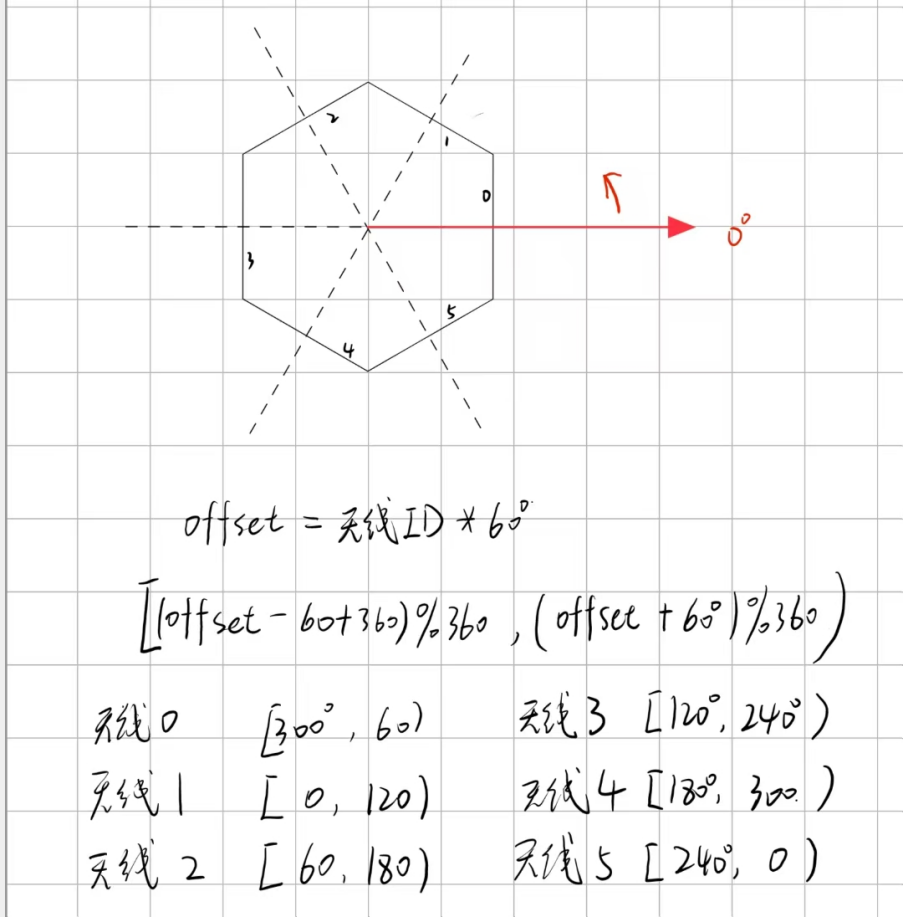 2
1
0
0°
3
5
4
offset = 天线ID * 60°
[(offset - 60+360)%360 , (offset + 60°)%360)
天线0 [300°, 60) 天线3 [120°, 240°)
天线1 [0, 120) 天线4 [180°, 300.)
天线2 [60, 180) 天线5 [240°, 0)